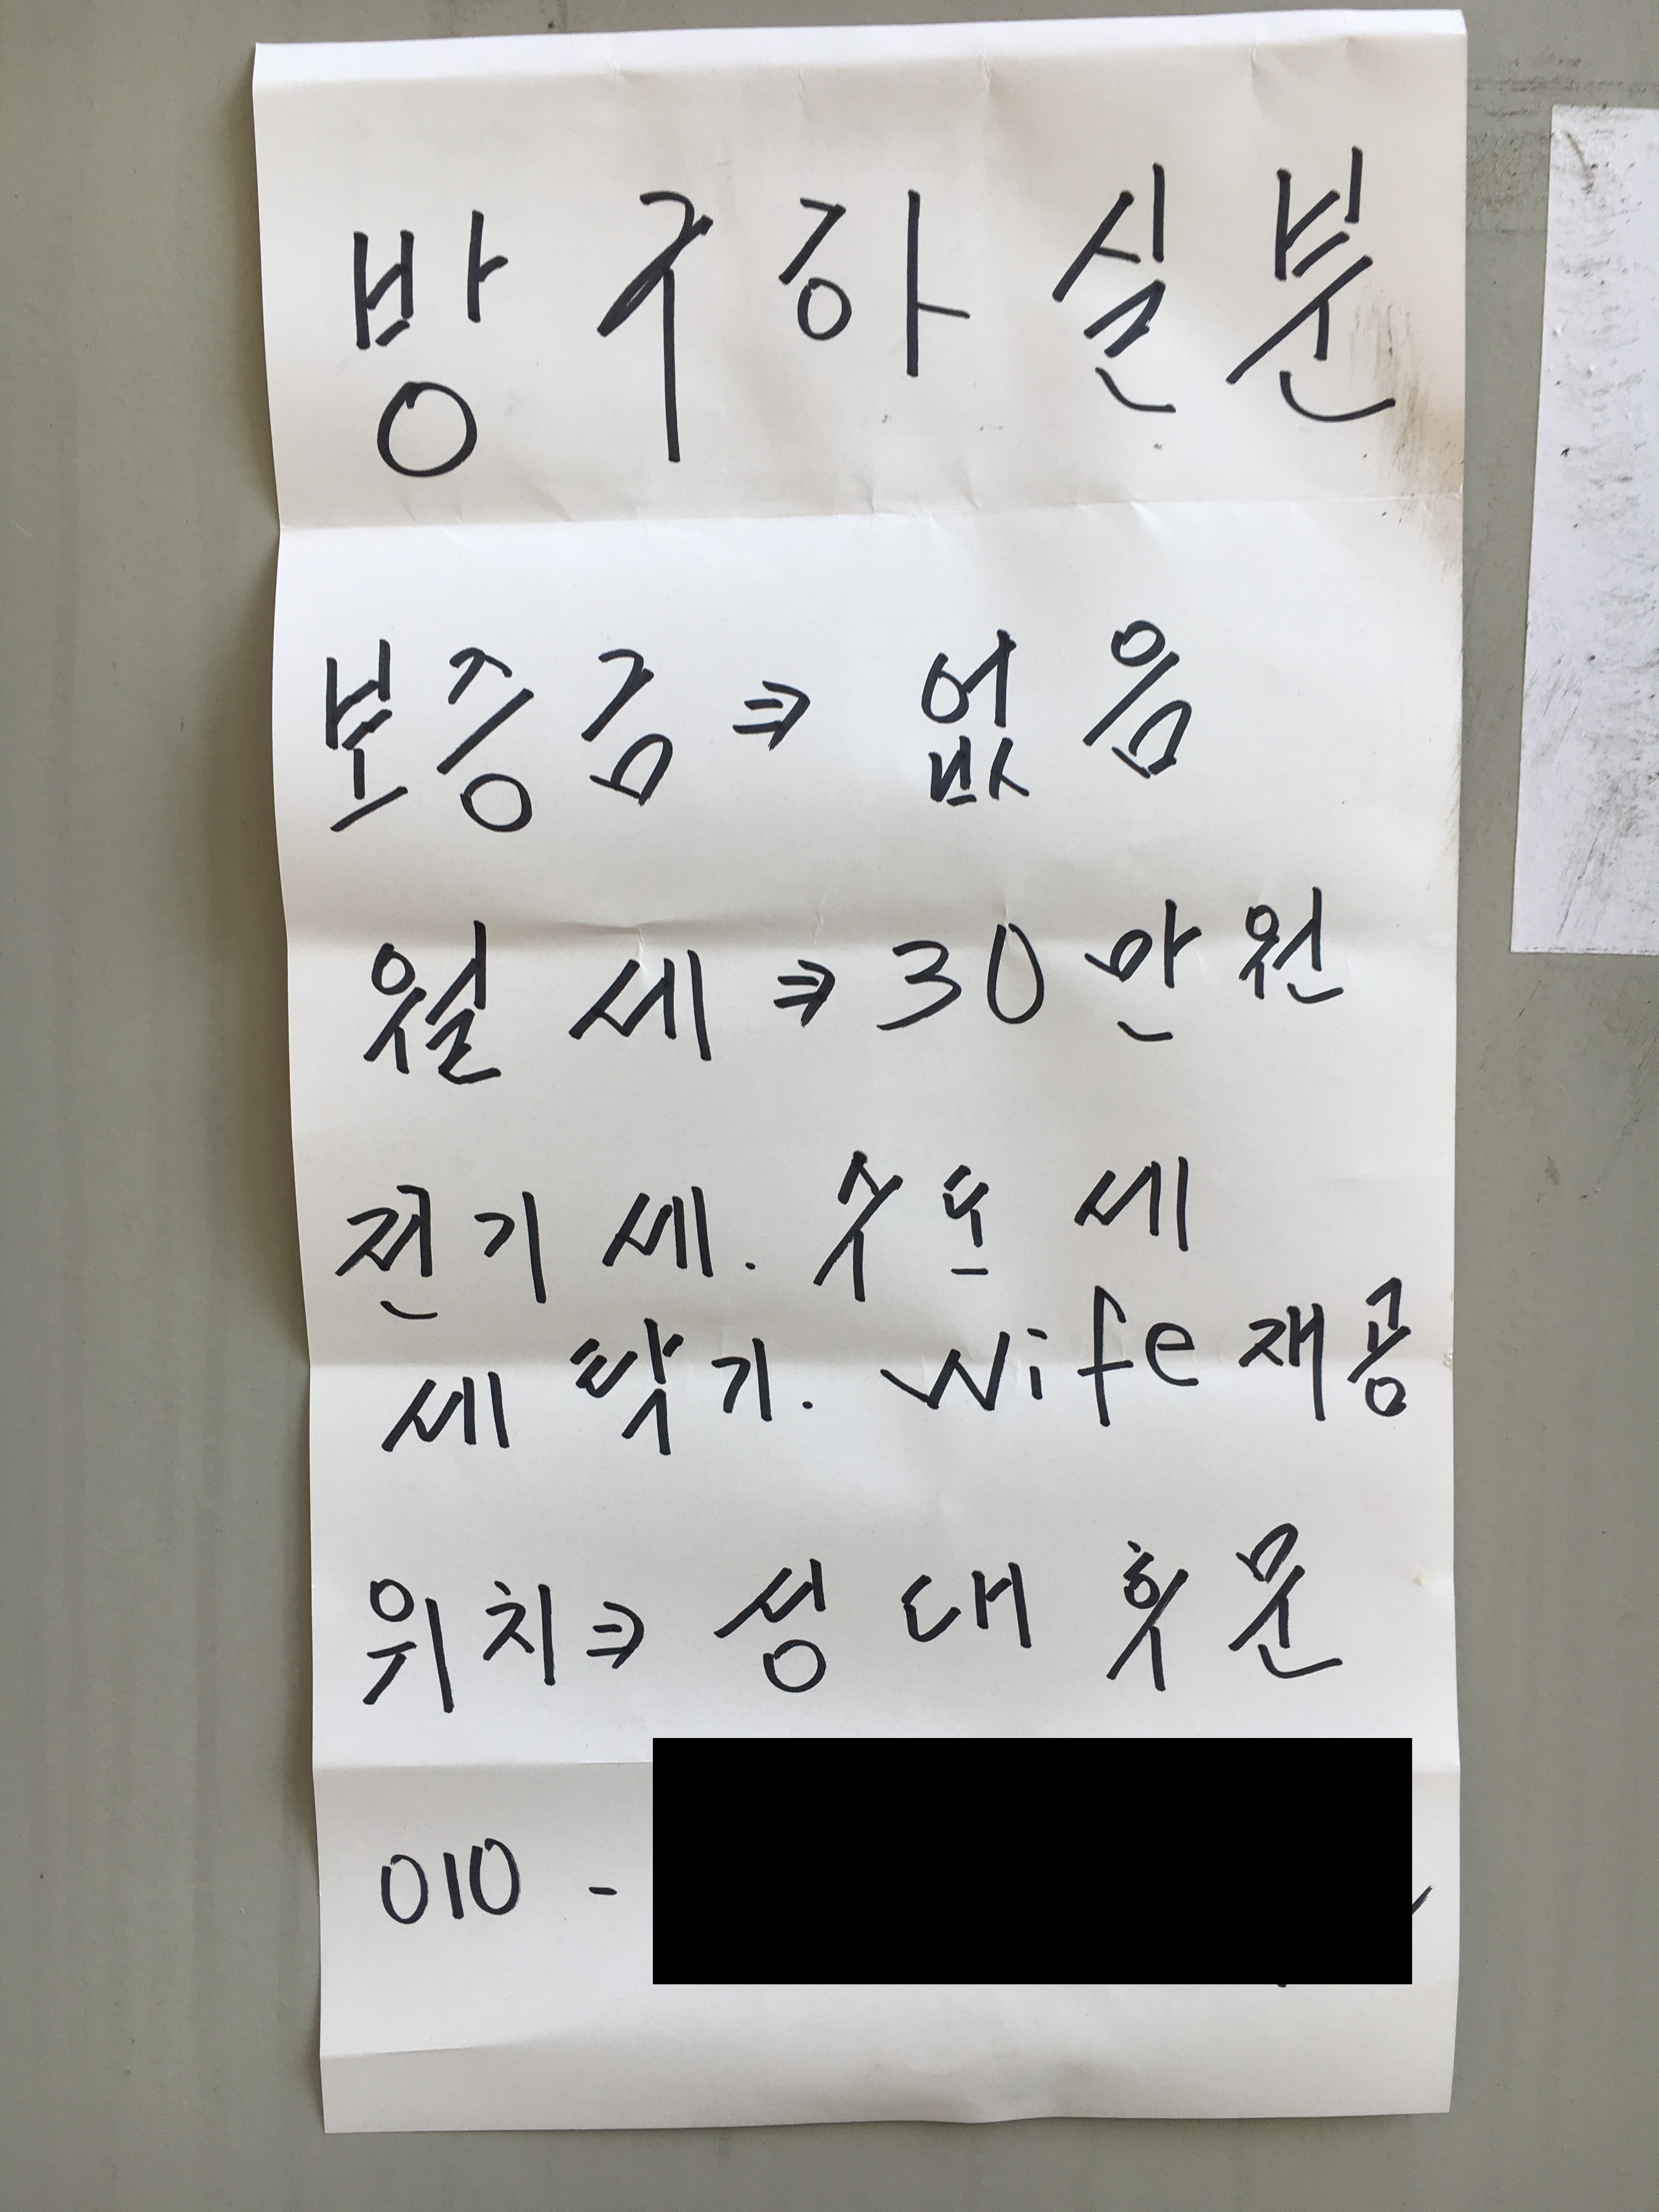 방 구하실 분
보증금 ⇒ 없음
월세 ⇒ 30만원
전기세. 수도세
세탁기. Wife 재공
위치 ⇒ 성대 후문
010 -